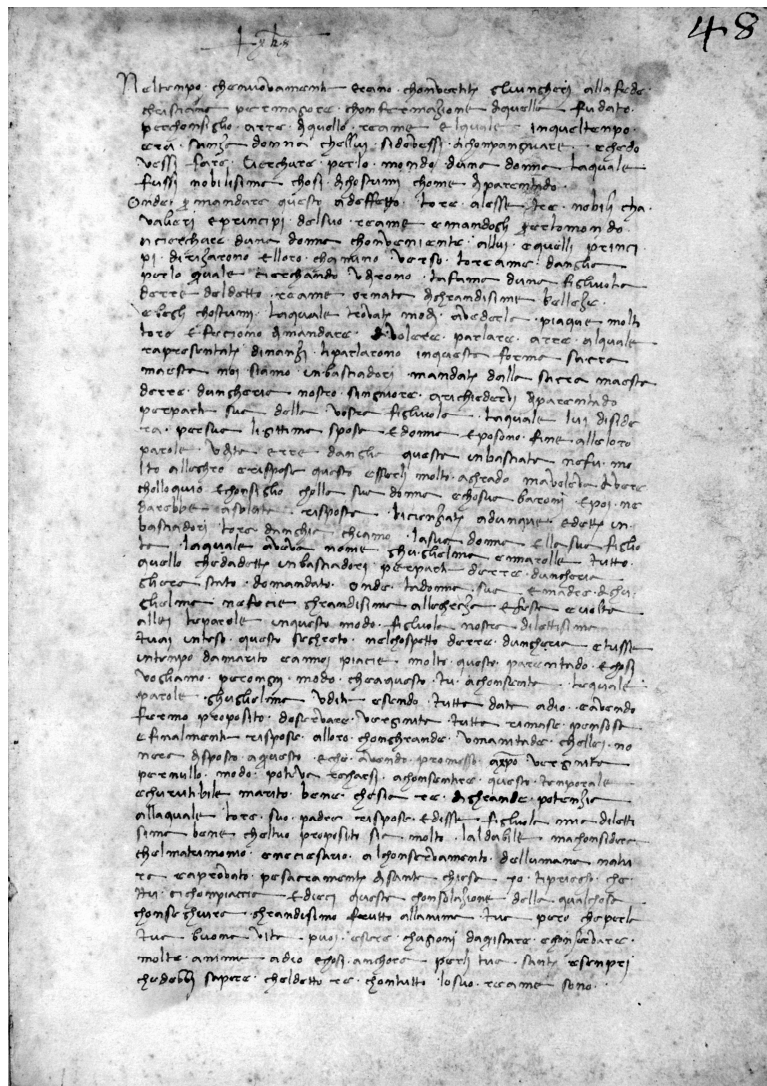 48
† yhs
Neltempo · chenuovamente erano · chonvertiti gliungheri alla fede ·
christiana per magore · chonfermazione dquella fu dato ·
perchonsiglio · arre · dquello · reame elquale inqueltempo ·
era · sanza donna chellui · sidovessi · achompangnare · echedo
vessi fare · cierchare · perlo · mondo duna donna laquale
fussi nobilisima chosi dchostumi chome dparentado ·
Onde · mandare questo adeffetto · lore · alesse · tre · nobili cha
valieri eprincipi · delsuo · reame emandogli perlomondo ·
acierchare duna donna chonveniente · allui · equelli princi
pi · dirizarono elloro · chamino verso · loreame · danglia
perlo quale cierchando udirono · lafama duna figluola
derre deldetto · reame ornata dghrandisime belleze ·
ebegli chostumi · laquale trovati modi davederla · piaque molto
loro efeciono dmandare · dvolere · parlare · arre · alquale
rapresentati dinanzi · liparlarono inquesta forma sacra
maesta noi siamo · inbasciadori · mandati dalla sacra maesta
derre · dungheria nostro · singniore · arichiedervi dparentado
perparte sua della vostra figluola · laquale lui diside
ra · persua ligittima sposa edonna eposono · fine alleloro
parole · udita erre danglia questa inbasciata nefu · mo
lto alleghro erispose questo esserli molto · aghrado mavoleva avere
cholloquio echonsiglio cholla sua donna echosua baroni epoi · ne
darebbe lasoluta · risposta · licienziati adunque · edetti in
basciadori lore danghia chiamo · lasua donna ella sua figluo
la · laquale aveva nome ghuglielma enarolle tutto ·
quello chedadetti inbasciadori perparte derre · dungheria
gliera stato · domandato · onde ladonna · sua emadre dghu
glielma nefecie ghrandisima allegreza efesta evolta
allei leparole inquesto modo · figluola nostra dilettisima
tuai inteso · questo seghreto · nelchospetto derre · dungheria etusse
intempo damarito eannoi piacie molto · questo parentado echosi
vogliamo · perongni modo · cheaquesto · tu · achonsenta · lequale
parole ghuglielma udite esendo · tutta data adio · eavendo
fermo proposito doservare verginita · tutta rimase · pensosa
efinalmente rispose · alloro · chonghrande umanitade · chellei · no
nera disposta aquesto · eche · avendo promesso axpo verginita
pernullo modo · poteva recharsi achonsentire · questo temporale
echurutibile marito · bene · chesia · re · dighrande · potenzia
allaquale lore · suo · padre rispose · edisse figluola mia diletti
sima bene cheltuo proposito sia molto · laldabile · machonsidera
chelmatrimonio enecesario alchonservamento · dellumana natu
ra eaprobato · pesacramenti disanta chiesa · jo · tipriegho che
ttu · cichompiaccia edieci questa chonsolazione della qualchosa
chonseghuira ghrandisimo frutto allanima tua pero cheperla
tua buona vita puoi · esere chagioni daqistare echonservare ·
molte · anime adio echosi · anchora perli tua · santi esenpri
chedebbi sapere cheldetto re · chontutto losuo · reame sono ·